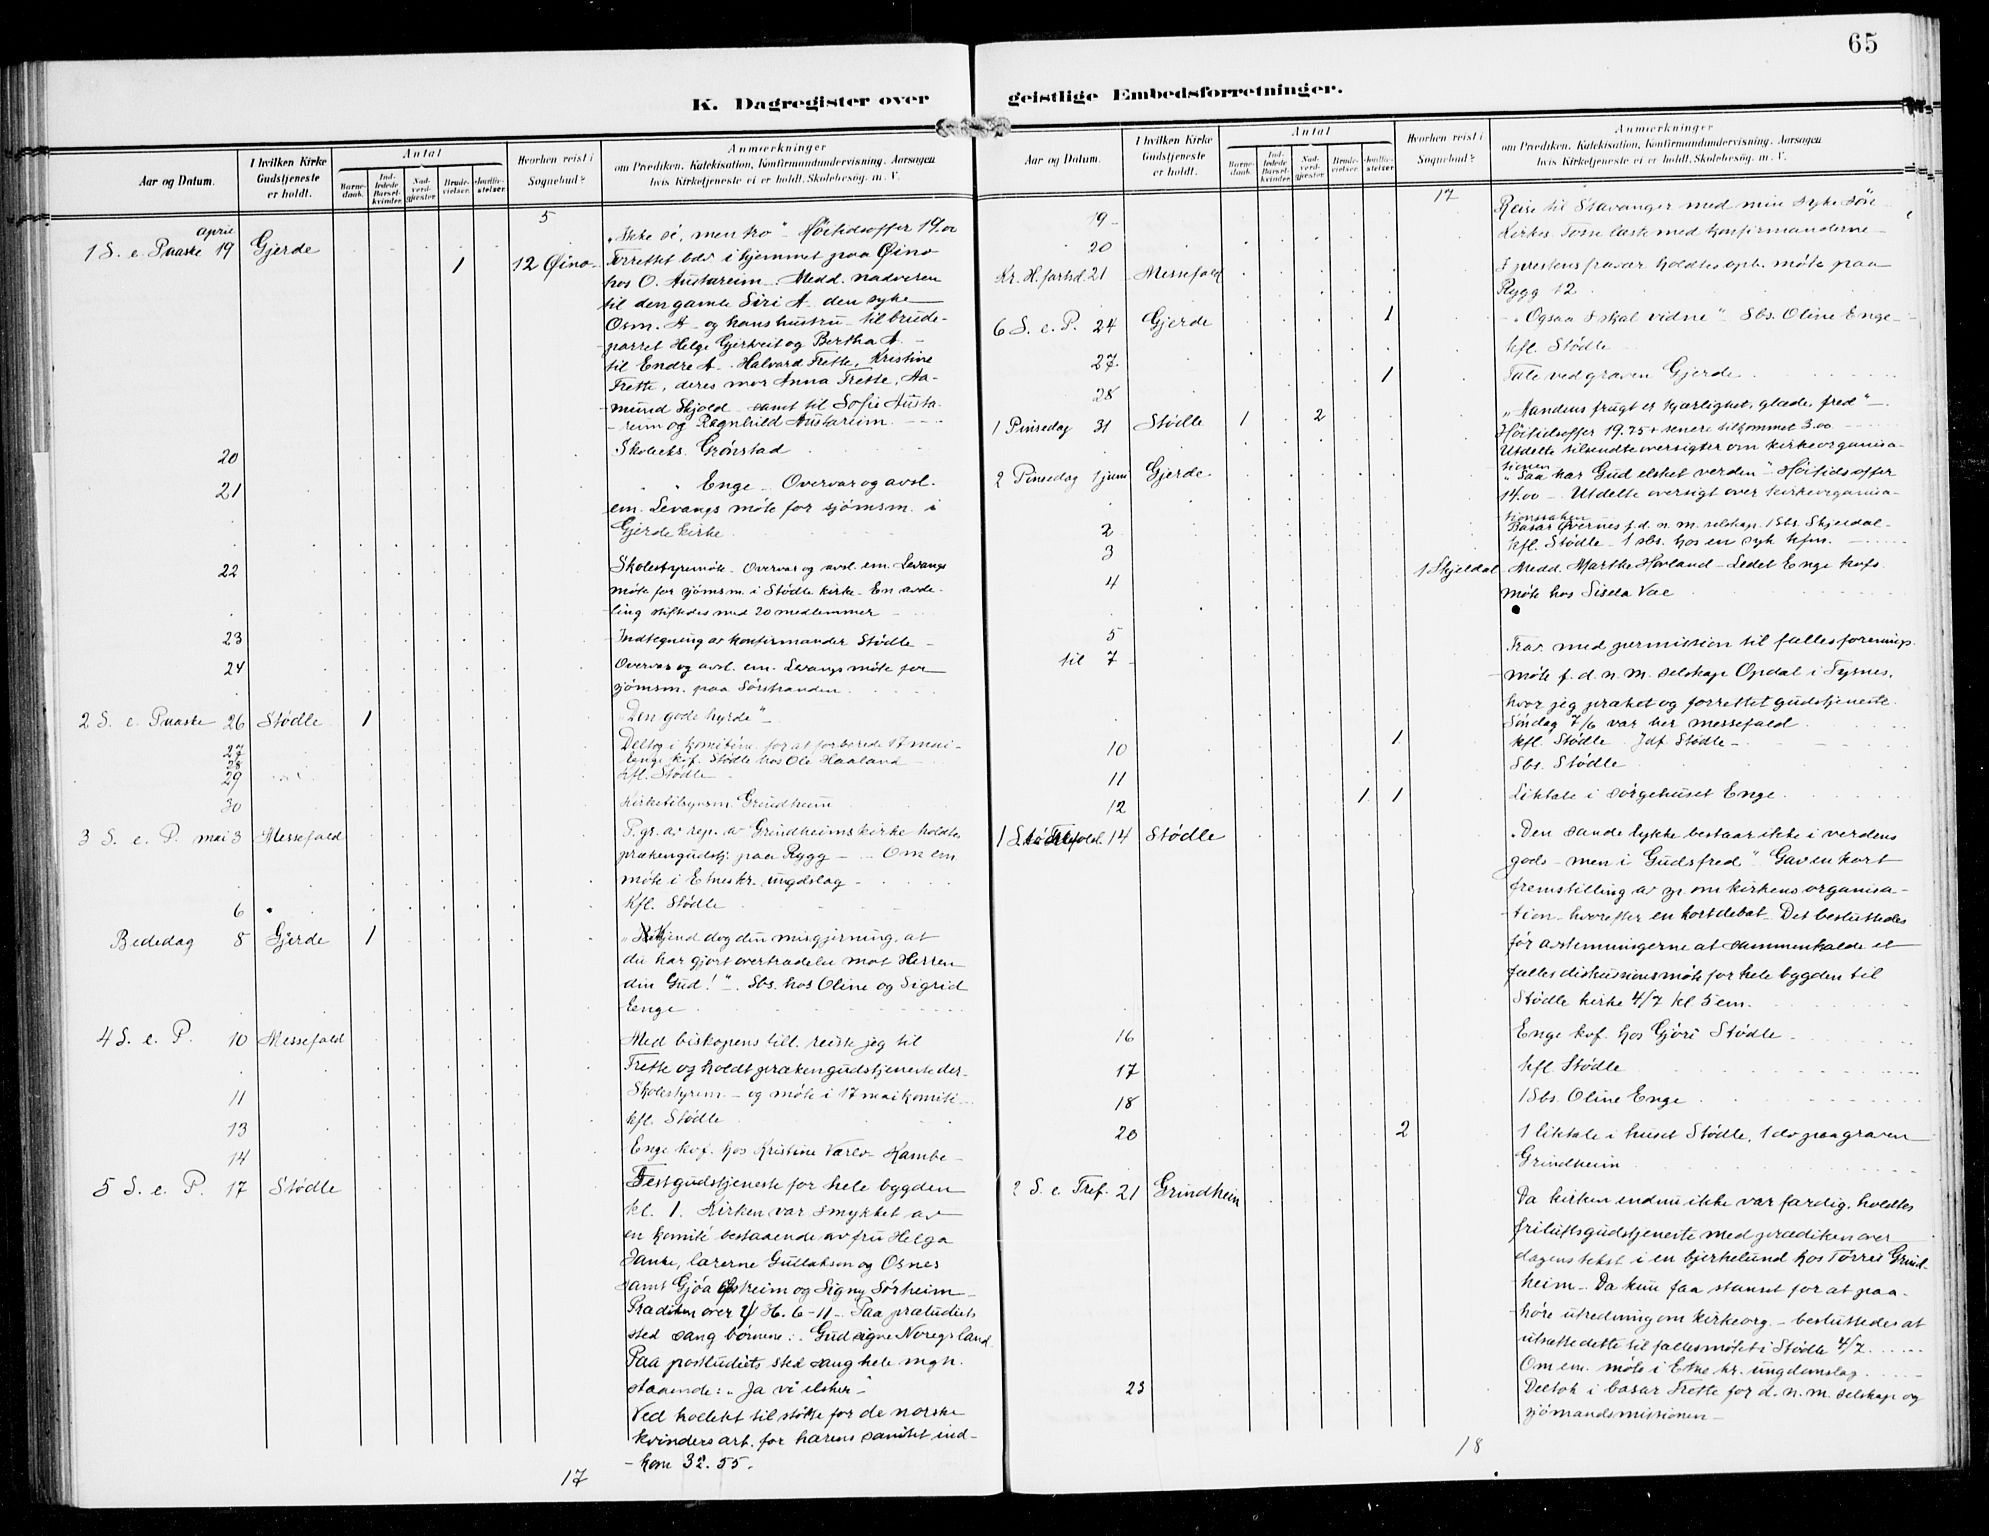 65
K. Dagregister over geistlige Embedsforretninger.
Aar og Datum.
I hvilken Kirke Gudstjeneste er holdt.
Antal
Barnedaab.
Indledede Barselkvinder.
Nadverdgjæster
Brudevielser.
Jordfæstelser.
Hvorhen reist i Sognebud?
Anmerkninger
om Prædiken, Katekisation, Konfirmandundervisning, Aarsagen
hvis Kirketjeneste ei er holdt, Skolebesøg. m. V.
5
april
1 S. e. Paaske 19 Gjerde "Ikke sé, men tro" – Høitidsoffer 19.00
1 12 Øino Forrettet bdv i hjemmet paa Øino
hos O. Austareim – Medd. nadveren
til den gamle Siri A – den syke
Osm. A – og hans hustru – til brude-
parret Helge Gjerkveit og Bertha A –
til Endre A – Halvard Frette, Kristine
Frette, deres mor Anna Frette, Aa-
mund Skjold – samt til Sofie Austa-
reim og Ragnhild Austareim.
20 Skolebs. Grønstad
21 " Enge – Overvar og avsl.
em. Levangs møte for sjømsm. i
Gjerde kirke
22 Skolestyremøte – Overvar og avsl. em. Levangs
møte for sjømsm. i Stødle kirke – En avde-
ling stiftedes med 20 medlemmer
23 Indtegning av konfirmander Stødle –
24 Overvar og avsl. em. Levangs møte for
sjømsm. paa Sørstranden
2 S. e. Paaske 26 Stødle 1 "Den gode hyrde" –
27 Deltog i komitéen for at forberede 17 mai –
28 Enge kvf. Stødle hos Ole Haaland
29 kfl. Stødle
30 Kirketilsynsm. Grindheim
3 S. e. P. mai 3 Messefald P. gr. av rep. av Grindheims kirke holdtes
prækengudstj. paa Rygg – Om em
møte i Etneskr. ungdslag –
6 Kfl. Stødle
Bededag 8 Gjerde 1 "Kjend dog din misgjerning, at
du har gjort overtrædelse mot Herren
din Gud!" – Sbs. hos Oline og Sigrid
Enge
4 S. e. P. 10 Messefald Med biskopens till. reiste jeg til
Frette og holdt prækengudstjeneste der –
11 Skolestyrem – og møte i 17 maikomité –
13 kfl. Stødle
14 Enge kvf. hos Kristine Kambe –
5 S. e. P. 17 Stødle Festgudstjeneste for hele bygden
kl. 1. Kirken var smykket av
en komité bestaaende av fru Helga
Janke, lærerne Gullaksen og Osnes
samt Gjøa Østreim og Signy Sørheim –
Prædiken over H. 6-11 – Paa præludiets
sted sang børnene: "Gud signe Noregs land
Paa postludiets sted sang hele mgh.
staaende: "Ja vi elsker"
Ved kollekt til støtte for de norske
kvinders arb. for hærens sanitet ind-
– kom 32.55.
17
Aar og Datum.
I hvilken Kirke Gudstjeneste er holdt.
Antal
Barnedaab.
Indledede Barselkvinder.
Nadverdgjæster
Brudevielser.
Jordfæstelser.
Hvorhen reist i Sognebud?
Anmærkninger
om Prædiken, Katekisation, Konfirmandundervisning, Aarsagen
hvis Kirketjeneste ei er holdt, Skolebesög. m. V.
17
19 Reise til Stavanger med min syke søn
20 Kirkes. Tosse læste med konfirmanderne –
Kr. H. fartsd. 21 Messefald I prestens fravær holdtes opb. møte paa
Rygg 12
6 S. e. P. 24 Gjerde 1 – "Ogsaa I skal vidne" – Sbs. Oline Enge –
27 kfl. Stødle
28 1 Tale ved graven Gjerde
1 Pinsedag 31 Stødle 1 2 "Aandens frugt er kjærlighet, glæde, fred" –
Høitidsoffer 19.75 + senere tilkommet 3.00
Utdelte tilsendte oversigter om kirkeorganisa-
tionen
2 Pinsedag 1 juni Gjerde "Saa har Gud elsket verden" – Høitidsoffer
14.00 – Utdelte oversigt over kirkeorganisa-
tionssaken
2 Basar Øvernes f. d. n. m. selskap. 1 Sbs. Skjeldal –
3 kfl. Stødle – 1 sbs. hos en syk kfm. –
4 1 Skjeldal Medd. Marthe Hovland – Ledet Enge kvfs
møte hos Sisela Vae
5 Frav. med permission til fællesforenings-
til 7 møte f. d. n. m. selskap Opdal i Tysnes,
hvor jeg præket og forrettet gudstjeneste.
Søndag 7/6 var her messefald
10 1 kfl. Stødle – Jdf. Stødle –
11 Sbs. Stødle
12 1 1 Liktale i sørgehuset Enge
14 Stødle "Den sande lykke bestaar ikke i verdens
gods – men i Guds fred" Gav en kort
fremstilling av sp. om kirkens organisa-
– tion – hvorefter en kort debat – Det besluttedes
før avstemningerne at sammenkalde et
fælles diskussionsmøte for hele bygden til
Stødle kirke 4/7 kl 5 em.
16 Enge kvf. hos Gjøri Stødle –
17 kfl Stødle
18 1 Sbs. Oline Enge
20 2 1 liktale i huset Stødle, 1 do paa graven
Grindheim
2 S. e. Tref. 21 Grindheim Da kirken endnu ikke var færdig, holdtes
friluftsgudstjeneste med prædiken over
dagens tekst i en bjerkelund hos Tørres Grind-
heim – Da kun faa stanset for at paa-
høre utredning om kirkeorg. – besluttedes at
utsætte dette til fællesmøtet i Stødle 4/7
Om em. møte i Etne kr. ungdomslag.
23 Deltok i basar Frette for d. n. m. selskap og
sjømandsmissionen –
18